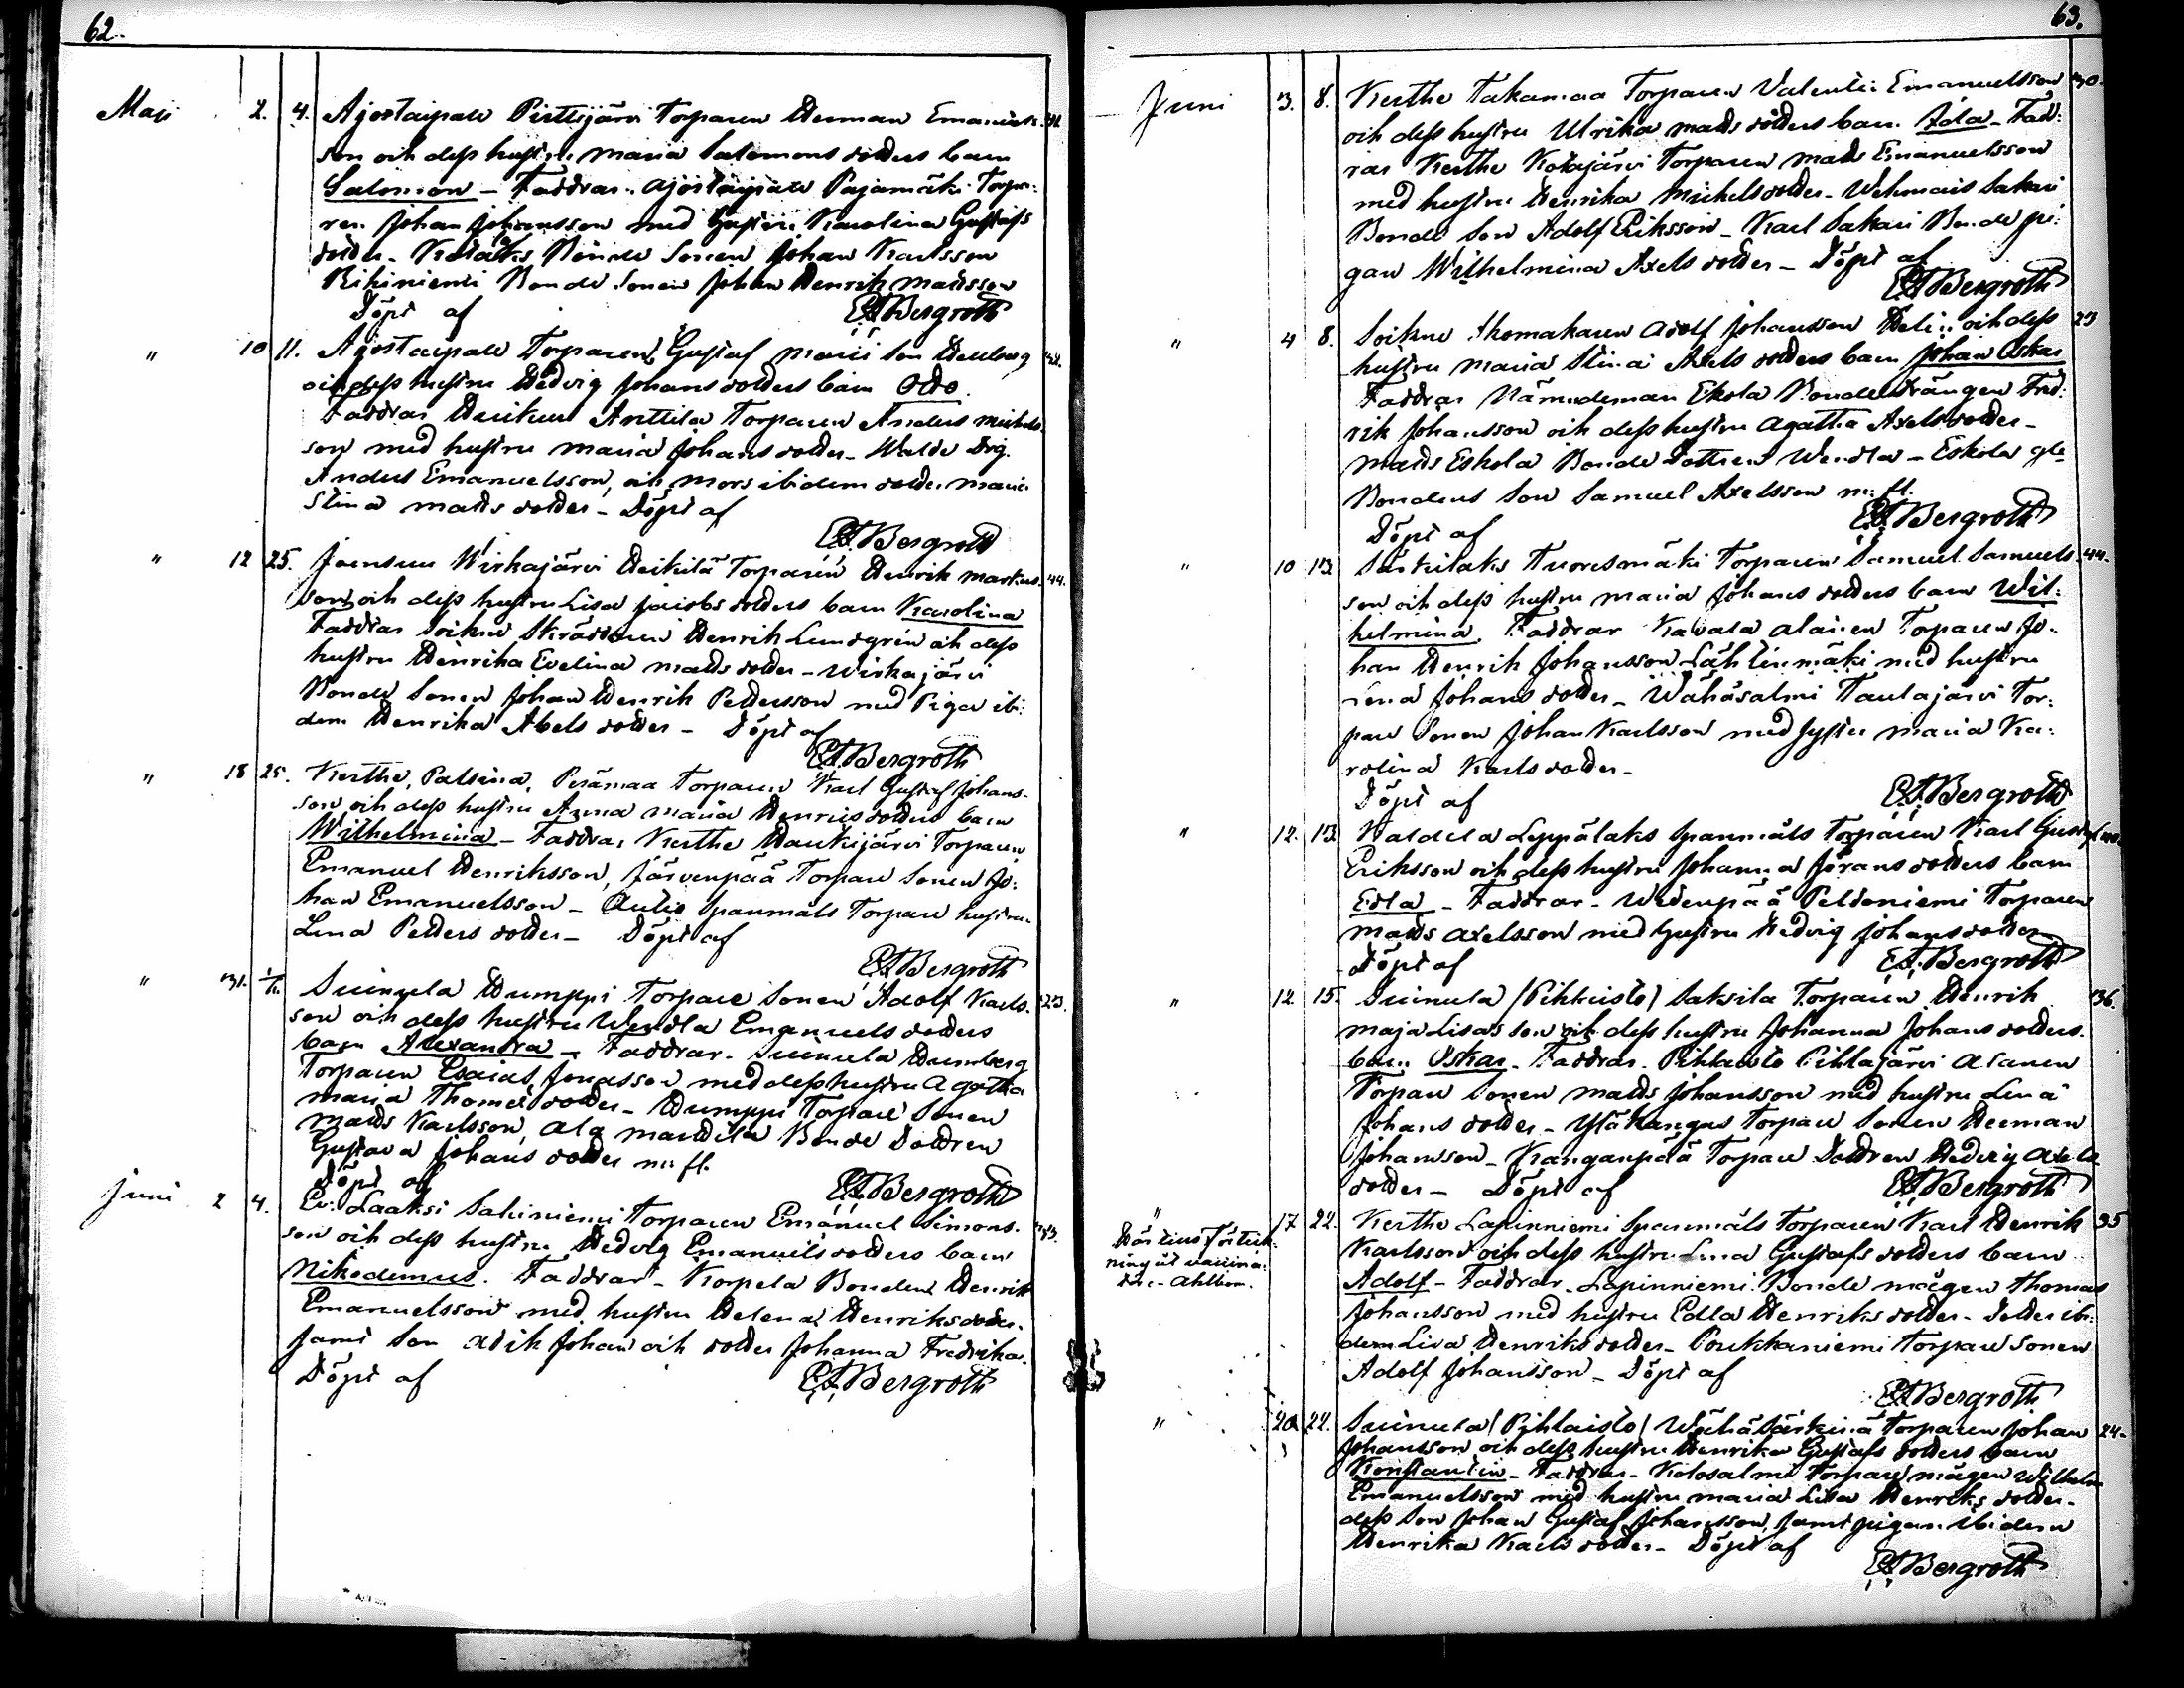 62.
Maji 2. 4. Ajostaipale Pirttijärvi Torparen Herman Emanuels-
son och dess hustru Maria Salomons dotters barn
Salomon – Faddrar. Ajostaipale Pajamäki Torpa-
ren Johan Johansson med hustru Karolina Gustafs
dotter – Bonde Sonen Johan Karlsson
Bonde Sonen Johan Henrik Mattsson
Döpt af E A Bergroth
" 10 11. Ajostaipale Torparen Gustaf son
och dess hustru Hedvig Johans dotters barn Otto.
Faddrar Anttila Torparen Anders Michels-
son med hustru Maria Johans dotter – Drg.
Anders Emanuelsson, och ibidem dotter Maria
Stina Matts dotter – Döpt af
E A Bergroth
" 12 25. Joensuu Wirkajärvi Heikilä Torparen Henrik Markus- 44.
son och dess hustru Lisa Jacobs dotters barn Karolina
Faddrar Soikne Skräddaren Henrik Lundgrén och dess
hustru Henrika Evelina Matts dotter – Wirkajärvi
Bonde Sonen Johan Henrik Pettersson med Piga ibi-
dem Henrika Abels dotter – Döpt af
E A Bergroth
" 18 25. Kerthe, Perämaa Torparen Karl Gustaf Johans-
son och dess hustru Anna Maria Henriks dotters barn
Wilhelmina – Faddrar Kerthe Haukijärvi Torparen
Emanuel Henriksson, Järvenpää Torpare Sonen Jo-
han Emanuelsson – Spanmåls Torpare hustrun
Lena Petters dotter – Döpt af
E A Bergroth
" 31. Suinula Humppi Torpare Sonen Adolf Karls- 23.
son och dess hustru Wendla Emanuels dotters
barn Alexandra – Faddrar – Suinula Humberg
Torparen Esaias Jonasson med dess hustru Agatha
Maria Thomæ dotter – Humppi Torpare Sonen
Matts Karlsson, Ala Marttila Bonde Dottren
Gustava Johans dotter m: fl.
Döpt af E A Bergroth
Juni 2 4. Laaksi Sakiniemi Torparen Emanuel Simons-
son och dess hustru Hedvig Emanuels dotters barn
Nikodemus. Faddrar – Korpela Bonden Henrik
Emanuelsson med hustru Helena Henriksdotter.
samt Son Johan och dotter Johanna Fredrika.
Döpt af E A Bergroth
63.
Juni 3. 8. Kerthe Takamaa Torparen Valentin Emanuelsson 30.
och dess hustru Ulrika Matts dotters barn Ida – Fad-
rar Kerthe Kotajärvi Torparen Matts Emanuelsson
med hustru Henrika Michels dotter – Wehmais Sakari
Bonde Son Adolf Eriksson – Karl Sakari Bonde pi-
gan Wilhelmina Axels dotter – Döpt af
E A Bergroth
" 4 8. Soikne Skomakaren Adolf Johansson och dess 23
hustru Maria Stina Axels dotters barn Johan Oskar
Faddrar Nämndeman Ekola Bonde drängen Fred-
rik Johansson och dess hustru Agatha Axels dotter –
Matts Eskola Bonde Dottren Wendla – Eskola
Bondens Son Samuel Axelsson m: fl.
Döpt af E A Bergroth
" 10 13 Särkilaks Tuoresmäki Torparen Samuel Samuels- 44.
son och dess hustru Maria Johans dotters barn Wil-
helmina. Faddrar Kavala Alainen Torparen Jo-
han Henrik Johansson Lähteenmäki med hustru
Lena Johans dotter – Wähäsalmi Taulajärvi Tor-
pare Sonen Johan Karlsson med syster Maria Ka-
rolina Karls dotter –
Döpt af E A Bergroth
" 12. 13 Leppälaks Spanmåls Torparen Karl Gustaf
Eriksson och dess hustru Johanna Jörans dotters barn
Edla – Faddrar – Peldoniemi Torparen
Matts Axelsson med hustru Hedvig Johans dotter
Döpt af E A Bergroth
" 12 15. Suinula /Pihlaisto/ Saksila Torparen Henrik 36.
Maja Lisas son och dess hustru Johanna Johans dotters
barn Oskar – Faddrar. Pihlaisto Pihlajärvi Asanen
Torpare Sonen Matts Johansson med hustru Lena
Johans dotter – Yläkangas Torpare Sonen Herman
Johansson – Kanganpää Torpare Dottren Hedvig Axels
dotter – Döpt af E A Bergroth
" 17 22. Kerthe Lapinniemi Spanmåls Torparen Karl Henrik 35
Karlsson och dess hustru Lena Gustafs dotters barn
Adolf – Faddrar – Lapinniemi Bonde mågen Thomas
Johansson med hustru Edla Henriks dotter – Dotter ibi-
dem Lisa Henriks dotter – Poukkaniemi Torpare Sonen
Adolf Johansson – Döpt af
E A Bergroth
" 20 22. Suinula /Pihlaisto/ Wähä Särkiniä Torparen Johan 24.
Johansson och dess hustru Henrika Gustafs dotters barn
Konstantin – Faddrar – Kolosalmi Torpare mågen Wilhelm
Emanuelsson med hustru Maria Lisa Henriks dotter –
dess Son Johan Gustaf Johansson, samt pigan ibidem
Henrika Karls dotter – Döpt af
E A Bergroth